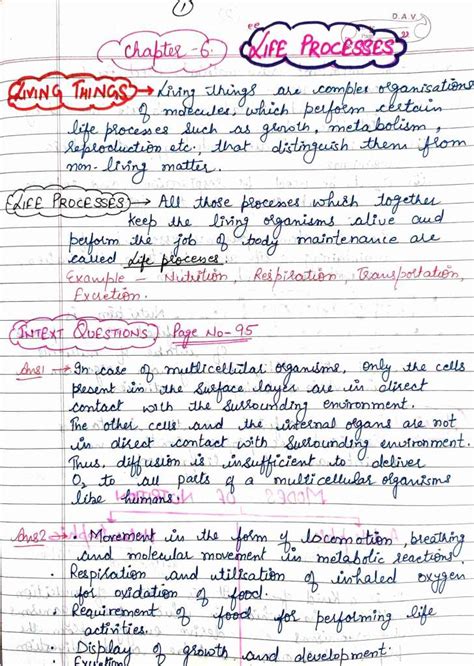 (1)
D.A.V.
Chapter - 6
LIFE PROCESSES
LIVING THINGS → Living things are complex organisations
of molecules, which perform certain
life processes such as growth, metabolism,
reproduction etc, that distinguish them from
non-living matter.
LIFE PROCESSES → All those processes which together
keep the living organisms alive and
perform the job of body maintenance are
called life processes.
Example - Nutrition, Respiration, Transportation,
Excretion.
INTEXT QUESTIONS Page No-95
Ans1 → In case of multicellular organisms, only the cells
present in the surface layer are in direct
contact with the surrounding environment.
The other cells and the internal organs are not
in direct contact with surrounding environment.
Thus, diffusion is insufficient to deliver
O2 to all parts of a multicellular organisms
like humans.
Ans2 → • Movement in the form of locomotion, breathing
and molecular movement in metabolic reactions.
• Respiration and utilisation of inhaled oxygen
for oxidation of food.
• Requirement of food for performing life
activities.
• Display of growth and development.
• Excretion